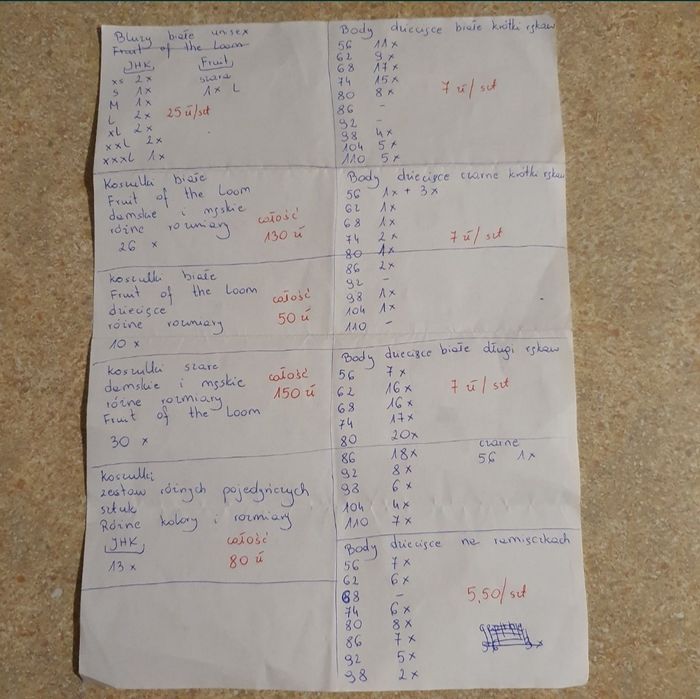 Bluzy białe unisex
Fruit of the Loom
JHK Fruit
xs 2x szara
S 1x 1x L
M 1x
L 2x 25 zł/szt
xL 2x
xxL 2x
xxxL 1x
Koszulki białe
Fruit of the Loom
damskie i męskie
różne rozmiary całość
26 x 130 zł
koszulki białe
Fruit of the Loom
dziecięce całość
różne rozmiary 50 zł
10 x
koszulki szare
damskie i męskie całość
różne rozmiary 150 zł
Fruit of the Loom
30 x
koszulki
zestaw różnych pojedyńczych
sztuk
Różne kolory i rozmiary
JHK całość
13 x 80 zł
Body dziecięce białe krótki rękaw
56 11x
62 9x
68 17x
74 15x 7 zł/szt
80 8x
86 -
92 -
98 4x
104 5x
110 5x
Body dziecięce czarne krótki rękaw
56 1x + 3x
62 1x
68 1x
74 2x 7 zł/szt
80 1x
86 2x
92 -
98 1x
104 1x
110 -
Body dziecięce białe długi rękaw
56 7x
62 16x 7 zł/szt
68 16x
74 17x
80 20x czarne
86 18x 56 1x
92 8x
98 6x
104 4x
110 7x
Body dziecięce na ramiączkach
56 7x
62 6x
68 - 5,50/szt
74 6x
80 8x
86 7x
92 5x
98 2x